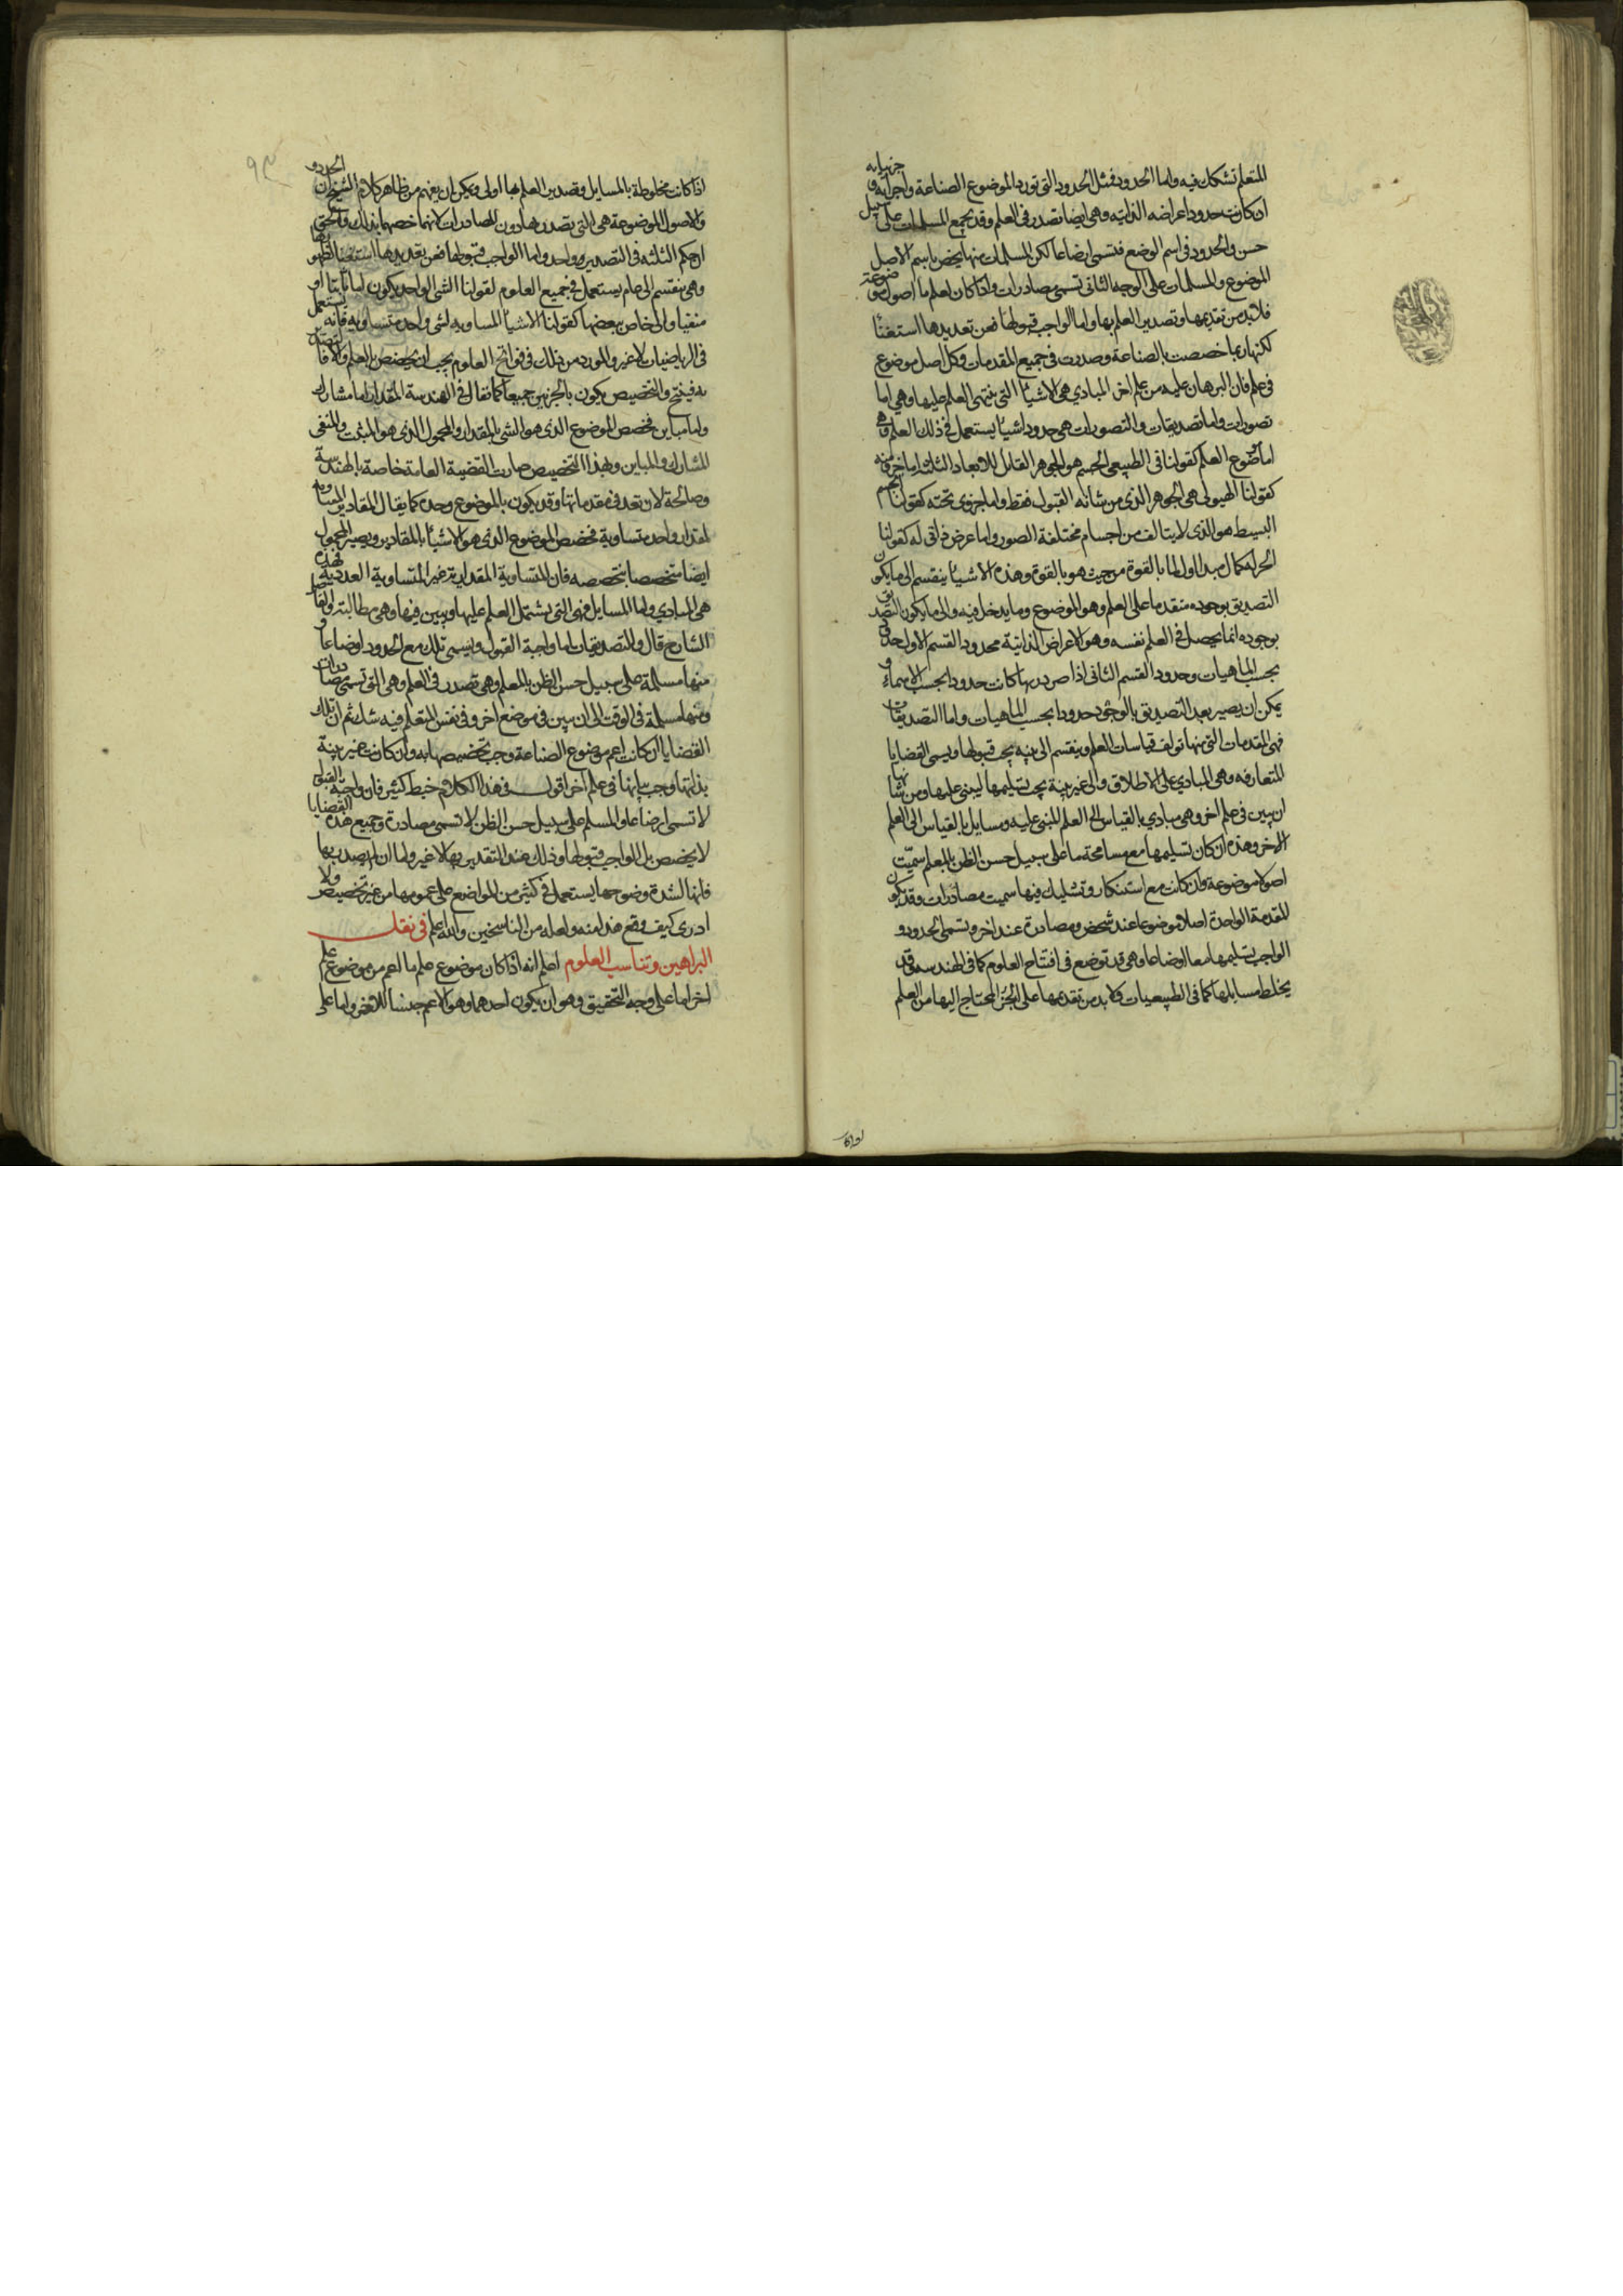 المتعلم تشكك فيه واما الحدود فمثل الحدود التى تورد الموضوع الصناعة واجزايه و جزيياته
ان كانت حدود اعراضه الذاتيه وهى ايضا تصدر فى العلم وقد تجمع المسلمات على سبيل
حسن والحدود فى اسم الوضع فتسمى اوضاعا لكن المسلمات منها يخص باسم الاصل
الموضوع والمسلمات على الوجه الثانى تسمى مصادرات واذا كان لعلم ما اصول موضوعة
فلا بد من تقديمها وتصدير العلم بها واما الواجب قبولها فعن تعديدها استغنا
لكنها ربما خصصت بالصناعة وصدرت فى جميع المقدمات وكل اصل موضوع
فى علم فان البرهان عليه من علم اخر المبادي هى الاشيا التى ينتهى العلم عليها وهى اما
تصورات واما تصديقات والتصورات هى حدود اشيا يستعمل فى ذلك العلم وهى
اما موضوع العلم كقولنا فى الطبيعى الجسم هو الجوهر القابل للابعاد الثلثة واما جزو منه
كقولنا الهيولى هى الجوهر الذى من شانه القبول فقط واما جزوى تحته كقولنا الجسم
البسيط هو الذى لا يتالف من اجسام مختلفة الصور واما عرض ذاتى له كقولنا
الحركة كمال مبدا اول لما بالقوة من حيث هو بالقوة وهذه الاشيا ينقسم الى ما يكون
التصديق بوجوده متقدما على العلم وهو الموضوع وما يدخل فيه والى ما يكون التصديق
بوجوده انما يحصل فى العلم نفسه وهو الاعراض الذاتية محدود القسم الاول حدود
بحسب الماهيات وحدود القسم الثانى اذا صدر بها كانت حدودا بحسب الاسماء و
يمكن ان يصير بعد التصديق بالوجود حدودا بحسب الماهيات واما التصديقات
فهى المقدمات التى منها تولف قياسات العلم وينقسم الى بينه يجب قبولها ويسمى القضايا
المتعارفه وهى المبادي على الاطلاق والى غير بينة يجب تسليمها ليبنى عليها ومن شانها
ان يبين فى علم اخر وهى مبادي بالقياس الى العلم المبنى عليه ومسايل بالقياس الى العلم
الاخر وهذه ان كان تسليمها مع مسامحة ما على سبيل حسن الظن بالمعلم سميت
اصولا موضوعة وان كانت مع استنكار وتشكيك فيها سميت مصادرات وقد يكون
المقدمة الواحدة اصلا موضوعا عند شخص ومصادرة عند اخر وتسمى الحدود و
الواجب تسليمها معا اوضاعا وهى قد توضع فى افتتاح العلوم كما فى الهندسه وقد
يخلط مسايلها كما فى الطبيعيات ولا بد من تقدمها على الجزء المحتاج اليها من العلم
اذا كانت مخلوطة بالمسايل وتصدير العلم بها اولى ويمكن ان يفهم من ظاهر كلام الشيخ ان الحدود
والاصول الموضوعة هى التى يصدر بها دون المصادرات لانهما خصهما بذلك والحق
ان حكم الثلثه فى التصدير واحد واما الواجب قبولها فعن تعديدها استغنا لظهورها
وهى ينقسم الى عام يستعمل فى جميع العلوم كقولنا الشى الواحد يكون اما ثابتا او
منفيا والى خاص ببعضها كقولنا الاشيا المساويه لشى واحد متساويه فانه يستعمل
فى الرياضيات لا غير والمورد من ذلك فى فواتح العلوم يجب ان يخصص بالعلم والا فالتصدير
به قبيح والتخصيص يكون بالجزين جميعا كما تقال فى الهندسة المقدار اما مشارك
واما مباين فخصص الموضوع الذى هو الشى بالمقدار والمحمول الذى هو المثبت والمنفى
المشارك والمباين وبهذا التخصيص صارت القضية العامة خاصة بالهندسة
وصالحة لان تعد فى مقدماتها وقد يكون بالموضوع وحده كما يقال المقادير المساوية
لمقدار واحد متساوية فخصص الموضوع الذى هو الاشيا بالمقادير ويصير المحمول
ايضا متخصصا بتخصصه فان المتساوية المقدارية غير المتساوية العددية فهذه
هى المبادي واما المسايل فهى التى يشتمل العلم عليها ويبين فيها وهى مطالبته والفاضل
الشارح قال والتصديقيات اما واجبة القبول ويسمى تلك مع الحدود اوضاعا و
منها مسلمة على سبيل حسن الظن بالمعلم وهى تصدر فى العلم وهى التى تسمى مصادرات
ومنها مسلمة فى الوقت الى ان يبين فى موضع اخر وفى نفس المتعلم فيه شك ثم ان تلك
القضايا ان كانت اعم من موضوع الصناعة وجب تخصيصها به وان كانت غير بينة
بذاتها وجب بيانها فى علم اخر اقول فى هذا الكلام خبط كثير فان واجبة القبول
لا تسمى اوضاعا والمسلم على سبيل حسن الظن لا تسمى مصادرة وجميع هذه القضايا
لا يخصص بل الواجب قبولها وذلك عند التقدير بها لا غير واما ان لم يصدر بها
فانها لشدة وضوحها يستعمل فى كثير من المواضع على عمومها من غير تخصيص ولا
ادرى كيف وقع هذا منه ولعله من الناسخين والله اعلم فى نقل
البراهين وتناسب العلوم اعلم انه اذا كان موضوع علم ما اعم من موضوع علم
اخر اما على وجه التحقيق وهو ان يكون احدهما وهو الاعم جنسا للاخص واما على